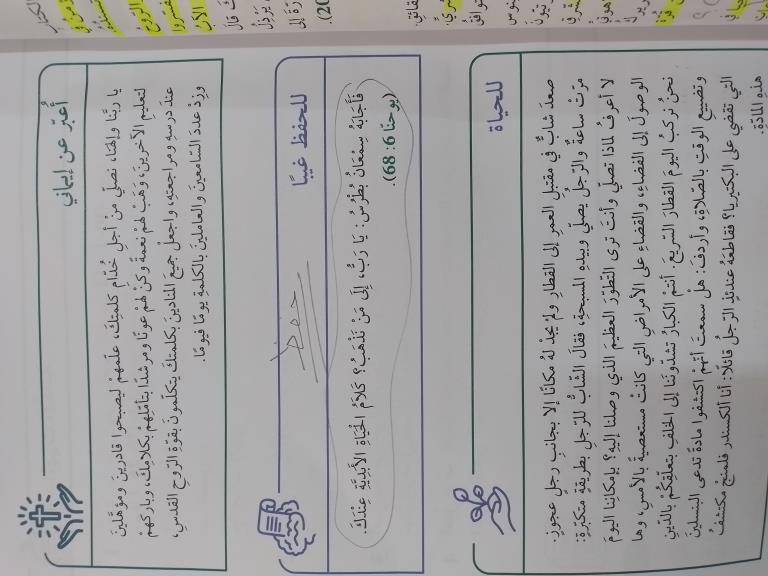 للحياة
صعدَ شابٌّ في مقتبلِ العمرِ إلى القطارِ ولمْ يجدْ لهُ مكانًا إلا بجانبِ رجلٍ عجوزٍ.
مرّتْ ساعةٌ والرّجلُ يُصلّي وبيدِهِ المسبحةِ، فقالَ الشّابُّ للرّجلِ بطريقةٍ متكبّرةٍ:
لا أعرفُ لماذا تصلّي وأنتَ ترى التّطوّرَ العظيمَ الذي وصلنا إليهِ؟ بإمكانِنا اليومَ
الوصولَ إلى الفضاءِ، والقضاءِ على الأمراضِ التي كانتْ مستعصيةً بالأمسِ، وها
نحنُ نركبُ اليومَ القطارَ السّريعَ. أنتمُ الكبارُ تشدّونَنا إلى الخلفِ بتعلّقِكُمْ بالدّينِ
وتضييعِ الوقتِ بالصّلاةِ، وأردفَ: هلْ سمعتَ أنّهمْ اكتشفوا مادةً تدعى البنسلينَ
التي تقضي على البكتيريا؟ فقاطعَهُ عندئذٍ الرّجلُ قائلًا: أنا ألكسندر فلمنج مكتشفُ
هذِهِ المادّةِ.
للحفظ غيبًا
فَأَجَابَهُ سِمْعَانُ بُطْرُسُ: يَا رَبُّ، إِلَى مَنْ نَذْهَبُ؟ كَلاَمُ الْحَيَاةِ الأَبَدِيَّةِ عِنْدَكَ.
(يوحنا 6: 68).
حفظ
أُعبّر عن إيماني
يا ربَّنا وإلهَنا، نصلّي منْ أجلِ خُدّامِ كلمتِكَ، علّمهمْ ليصبحوا قادرينَ ومؤهَّلينَ
لتعليمِ الآخرينَ، وَهَبْ لهمْ نعمةً وكنْ لهمْ عونًا ومرشدًا بتأمّلِهِمْ بكلامِكَ، وباركهمْ
عندَ درسِهِ ومراجعتِهِ، واجعلْ جميعَ المنادينَ بكلمتِكَ يتكلّمونَ بقوّةِ الرّوحِ القدسِ،
وزِدْ عددَ السّامعينَ والعاملينَ بالكلمةِ يومًا فيومًا.